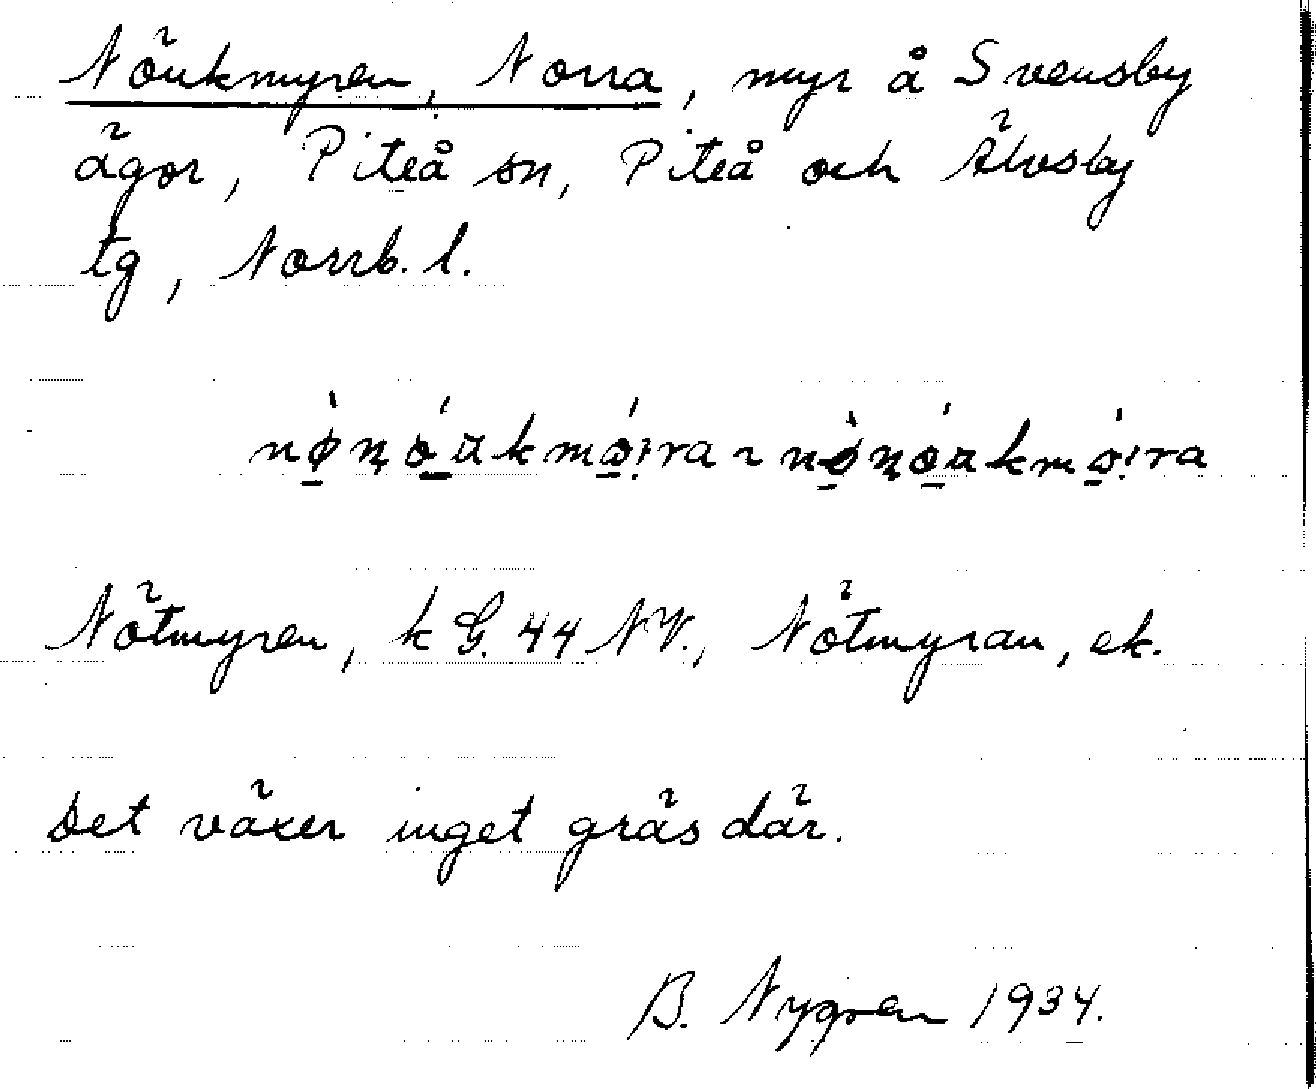 Nöukmyren, Norra, myr å Svensby
ägor, Piteå sn, Piteå och Älvsby
tg, Norrb. l.
Nötmyren, k G. 44 NV., Nötmyran, ek.
Det växer inget gräs där.
B. Nygren 1934.